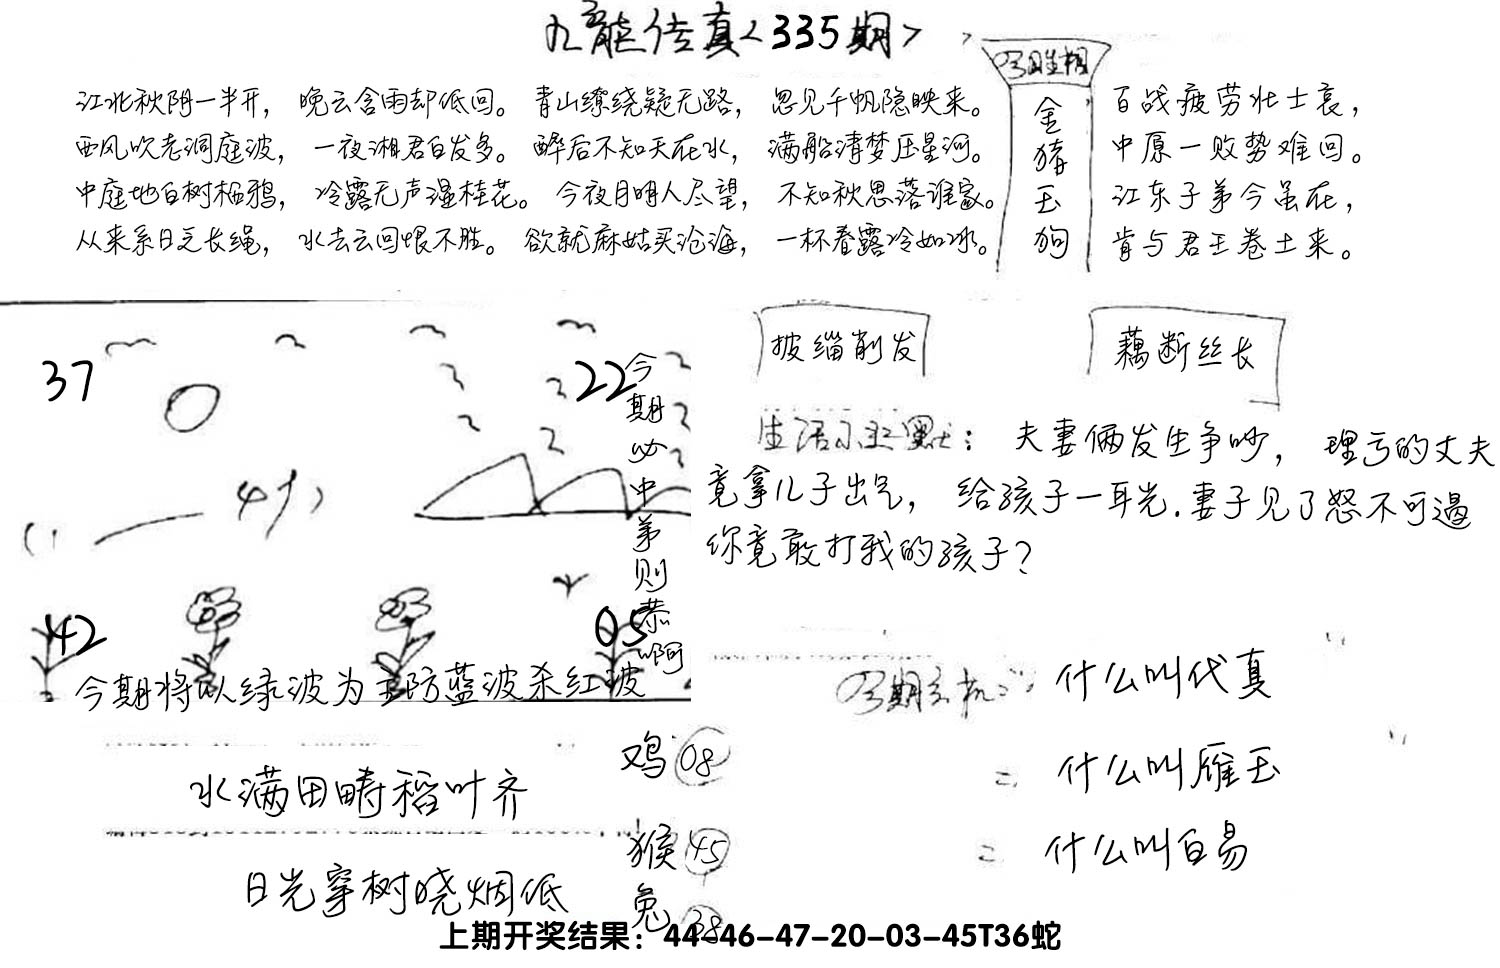 九龙传真<335期>
江北秋阴一半开，晚云含雨却低回。青山缭绕疑无路，忽见千帆隐映来。
西风吹老洞庭波，一夜湘君白发多。醉后不知天在水，满船清梦压星河。
中庭地白树栖鸦，冷露无声湿桂花。今夜月明人尽望，不知秋思落谁家。
从来系日乏长绳，水去云回恨不胜。欲就麻姑买沧海，一杯春露冷如冰。
金猪玉狗
百战疲劳壮士哀，
中原一败势难回。
江东子弟今虽在，
肯与君王卷土来。
37
22
42
05
今期必中第则恭啊
今期将以绿波为主防蓝波杀红波
披缁削发
藕断丝长
生活小幽默：夫妻俩发生争吵，理亏的丈夫
竟拿儿子出气，给孩子一耳光.妻子见了怒不可遏
你竟敢打我的孩子?
什么叫代真
二 什么叫雁玉
二 什么叫白易
水满田畴稻叶齐
日光穿树晓烟低
鸡 08
猴 45
兔 38
上期开奖结果：44-46-47-20-03-45T36蛇